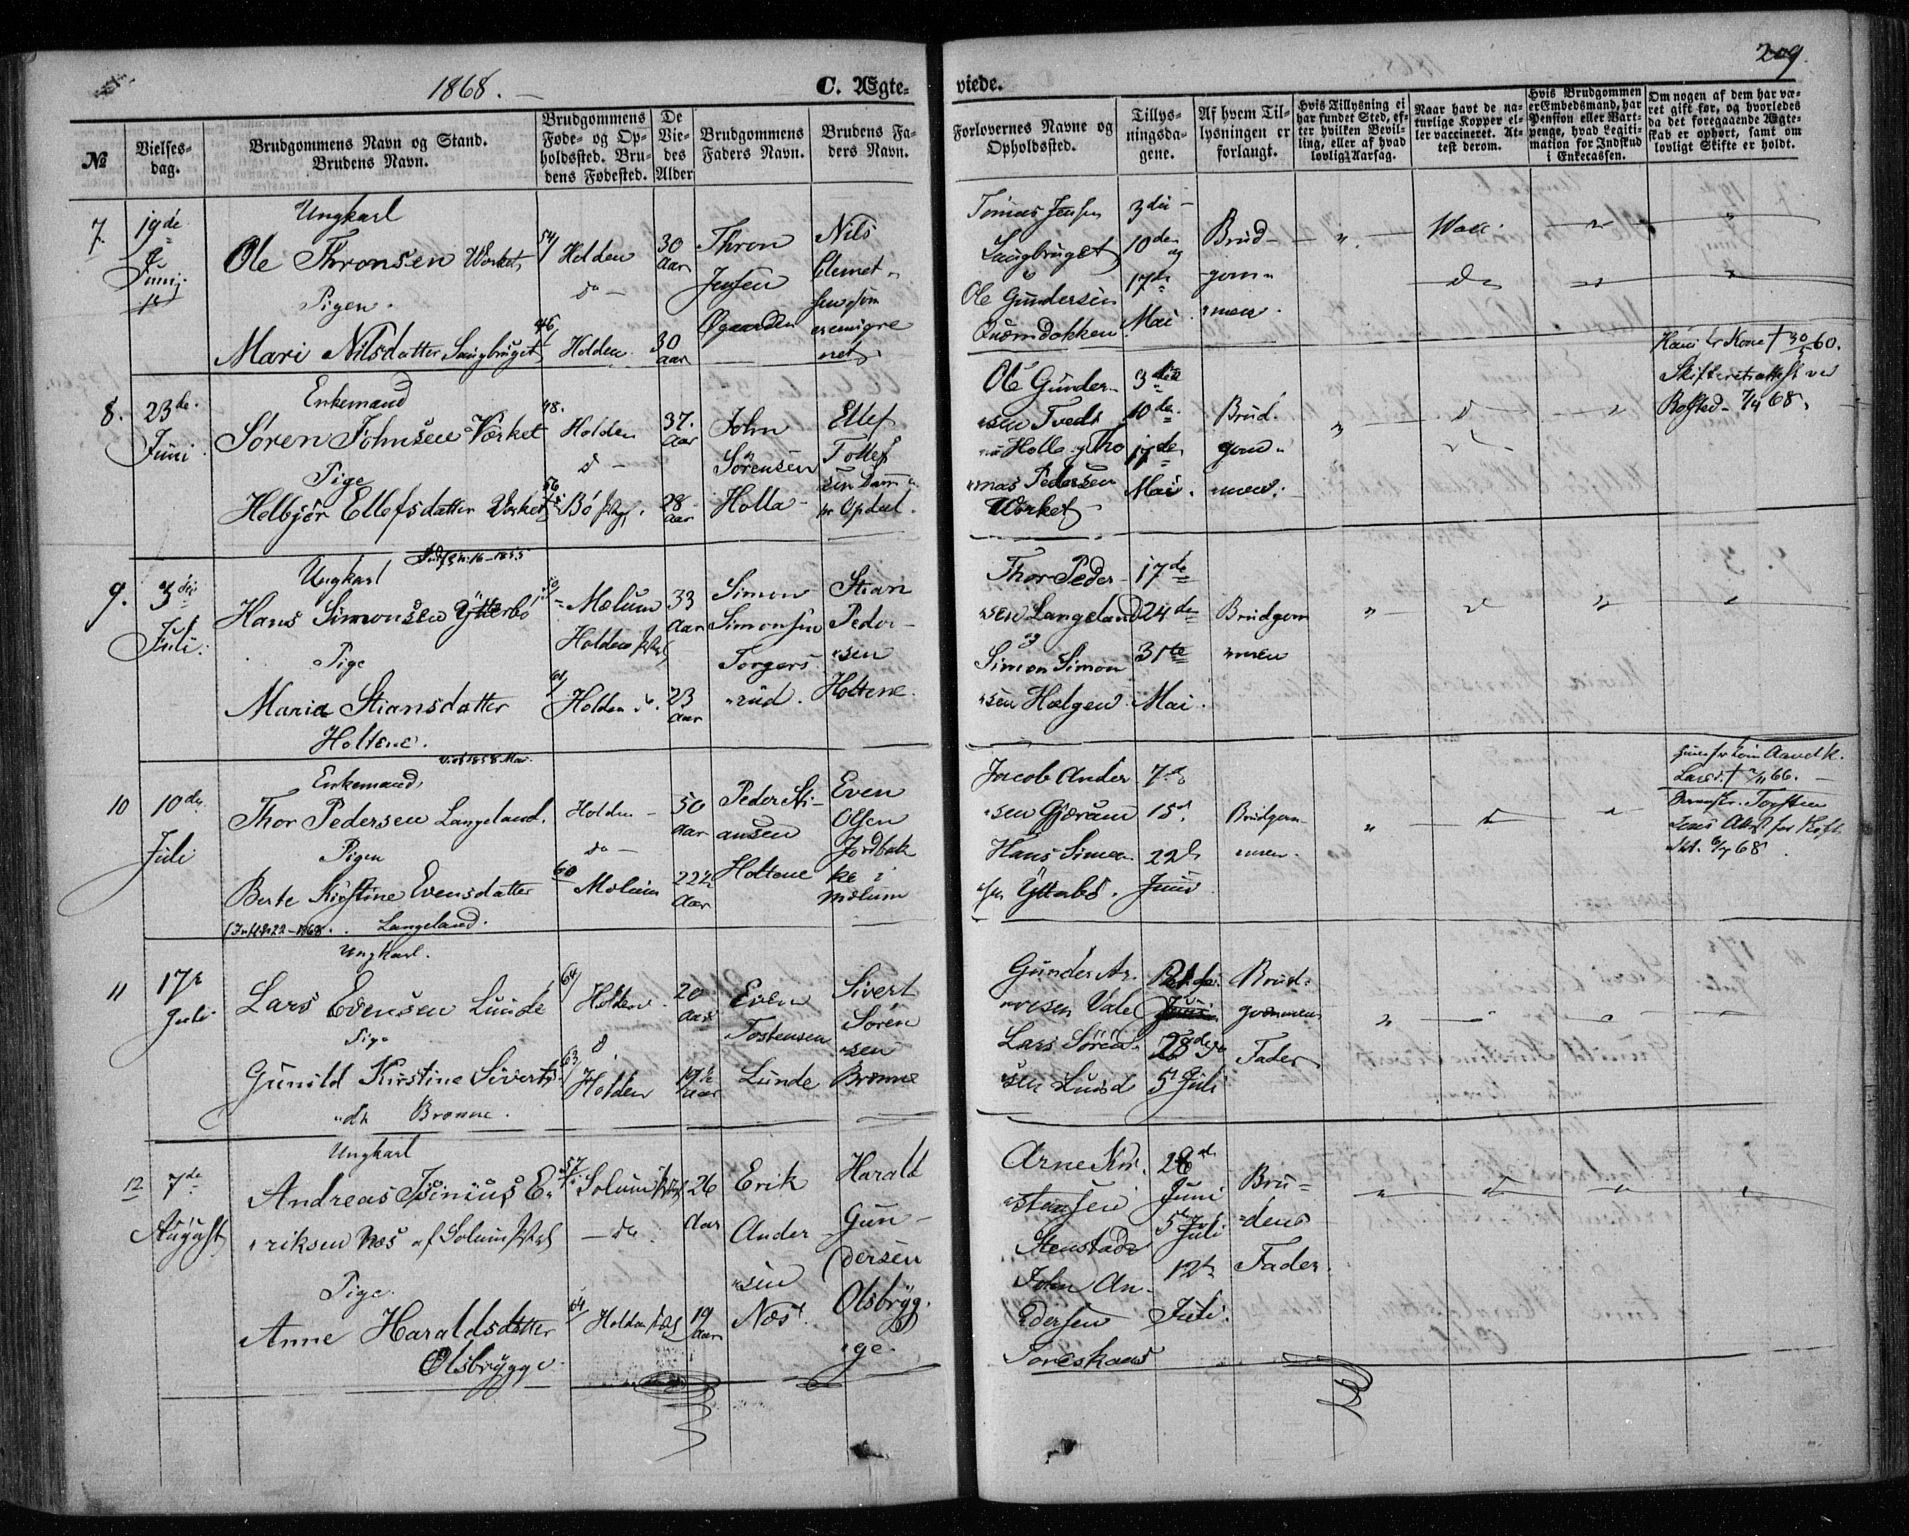 1868.
C. Ægte-
viede.
209.
№
Vielses-
dag.
Brudgommens Navn og Stand.
Brudens Navn.
Brudgommens
Føde- og Op-
holdssted. Bru-
dens Fødested.
De
Vie-
des
Alder
Brudgommens
Faders Navn.
Brudens Fa-
ders Navn.
Forlovernes Navne og
Opholdssted.
Tillys-
ningsda-
gene.
Af hvem Til-
lysningen er
forlangt.
Hvis Tillysning ei
har fundet Sted, ef-
ter hvilken Bevil-
ling, eller af hvad
lovligt Aarsag.
Naar havt de na-
turlige Kopper el-
ler vaccineret. At-
test derom.
Hvis Brudgommen
er Embedsmand, har
Pension eller Vart-
penge, hvad Legiti-
mation for Indskud
i Enkecassen.
Om nogen af dem har væ-
ret gift før, og hvorledes
da det foregaaende Ægte-
skab er ophørt, samt om
lovligt Skifte er holdt.
7.
19de
Junij
Ungkarl
Ole Thronsen Værket,
Pigen.
Mari Nilsdatter Saugbruget
54/
Holden
do -
46/
Holden.
30
Aar
30
Aar
Thron
Jensen
Øgaarden
Nils
Clemet-
sen som
er emigre
ret
Tomas Jensen
Saugbruget
Ole Gundersen
Quærndokken
3die -
10de og
17de
Mai
Brud-
gom-
men.
Vacc.
do
8.
23de.
Juni
Enkemand
Søren Johnsen Værket
Pige
Helbjør Ellefsdatter Værket
48.
Holden
d -
56
Bø
37.
Aar
28
Aar
John
Sørensen
Holla -
Ellef
Tollef
sen Dam
Opdal.
Ole Gunder-
sen Tvedt
Holla og Tho
mas Pedersen
Værket
3die
10de.
17de
Mai.
Brud.
gom-
men.
Hans Kone † 30/5 60.
Skifteretsattest ved
Rolsted 7/4 68.
9.
3die
Juli.
Ungkarl
Hans Simonsen Ytterbø
Pige
Maria Stiansdatter
Holtene.
50/
Mælum
Holden
61/
Holden
33
Aar
23
Aar
Simon
Simonsen
Torgers
rud.
Stian
Peder-
sen
Holtene.
Thor Peder-
sen Langeland
og
Simon Simon
sen Hælgen
17de
24de
31te
Mai.
Brudgom
men
10
10de
Juli
Enkemand,
Thor Pedersen Langeland.
Pigen
Berte Kirstine Evensdatter
Langeland.
Holden -
do -
60
Mælum
50
Aar
22½
Aar
Peder Sti-
ansen
Holtene
Even
Olsen
Jordbak
ke i
Mælum
Jacob Ander
sen Gjærum
Hans Simon
sen Ytterbø.
7de
15d.
22de
Juni
Brudgom-
men.
Lars. † 66.
68.
11
17de
Juli
Ungkarl.
Lars Evensen Lunde
Pige
Gunild Kirstine Siverts
dtr Brønne.
64/
Holden
d
63.
Holden
20
Aar
19½
Aar
Even
Tostensen
Lunde
Sivert
Søren
sen
Brønne
Gunder Ar.
nesen Vale
Lars Søren.
sen Lund
21de
Juni
28de og
5 Juli
Brud-
gommens
Fader
12
7de
August
Ungkarl
Andreas Isinius E-
riksen Næs af Solum
Pige.
Anne Haraldsdatter
Olsbrygge.
57/
Solum
- do.
64/
Holden
26
Aar
19
Aar
Erik
Ander
sen
Næs.
Harald
Gun-
dersen
Olsbryg.
ge.
Arne Kri.
stensen
Stenstad
John An-
dersen
28de
Juni
5te Juli
12te
Juli.
Bru-
dens
Fader.